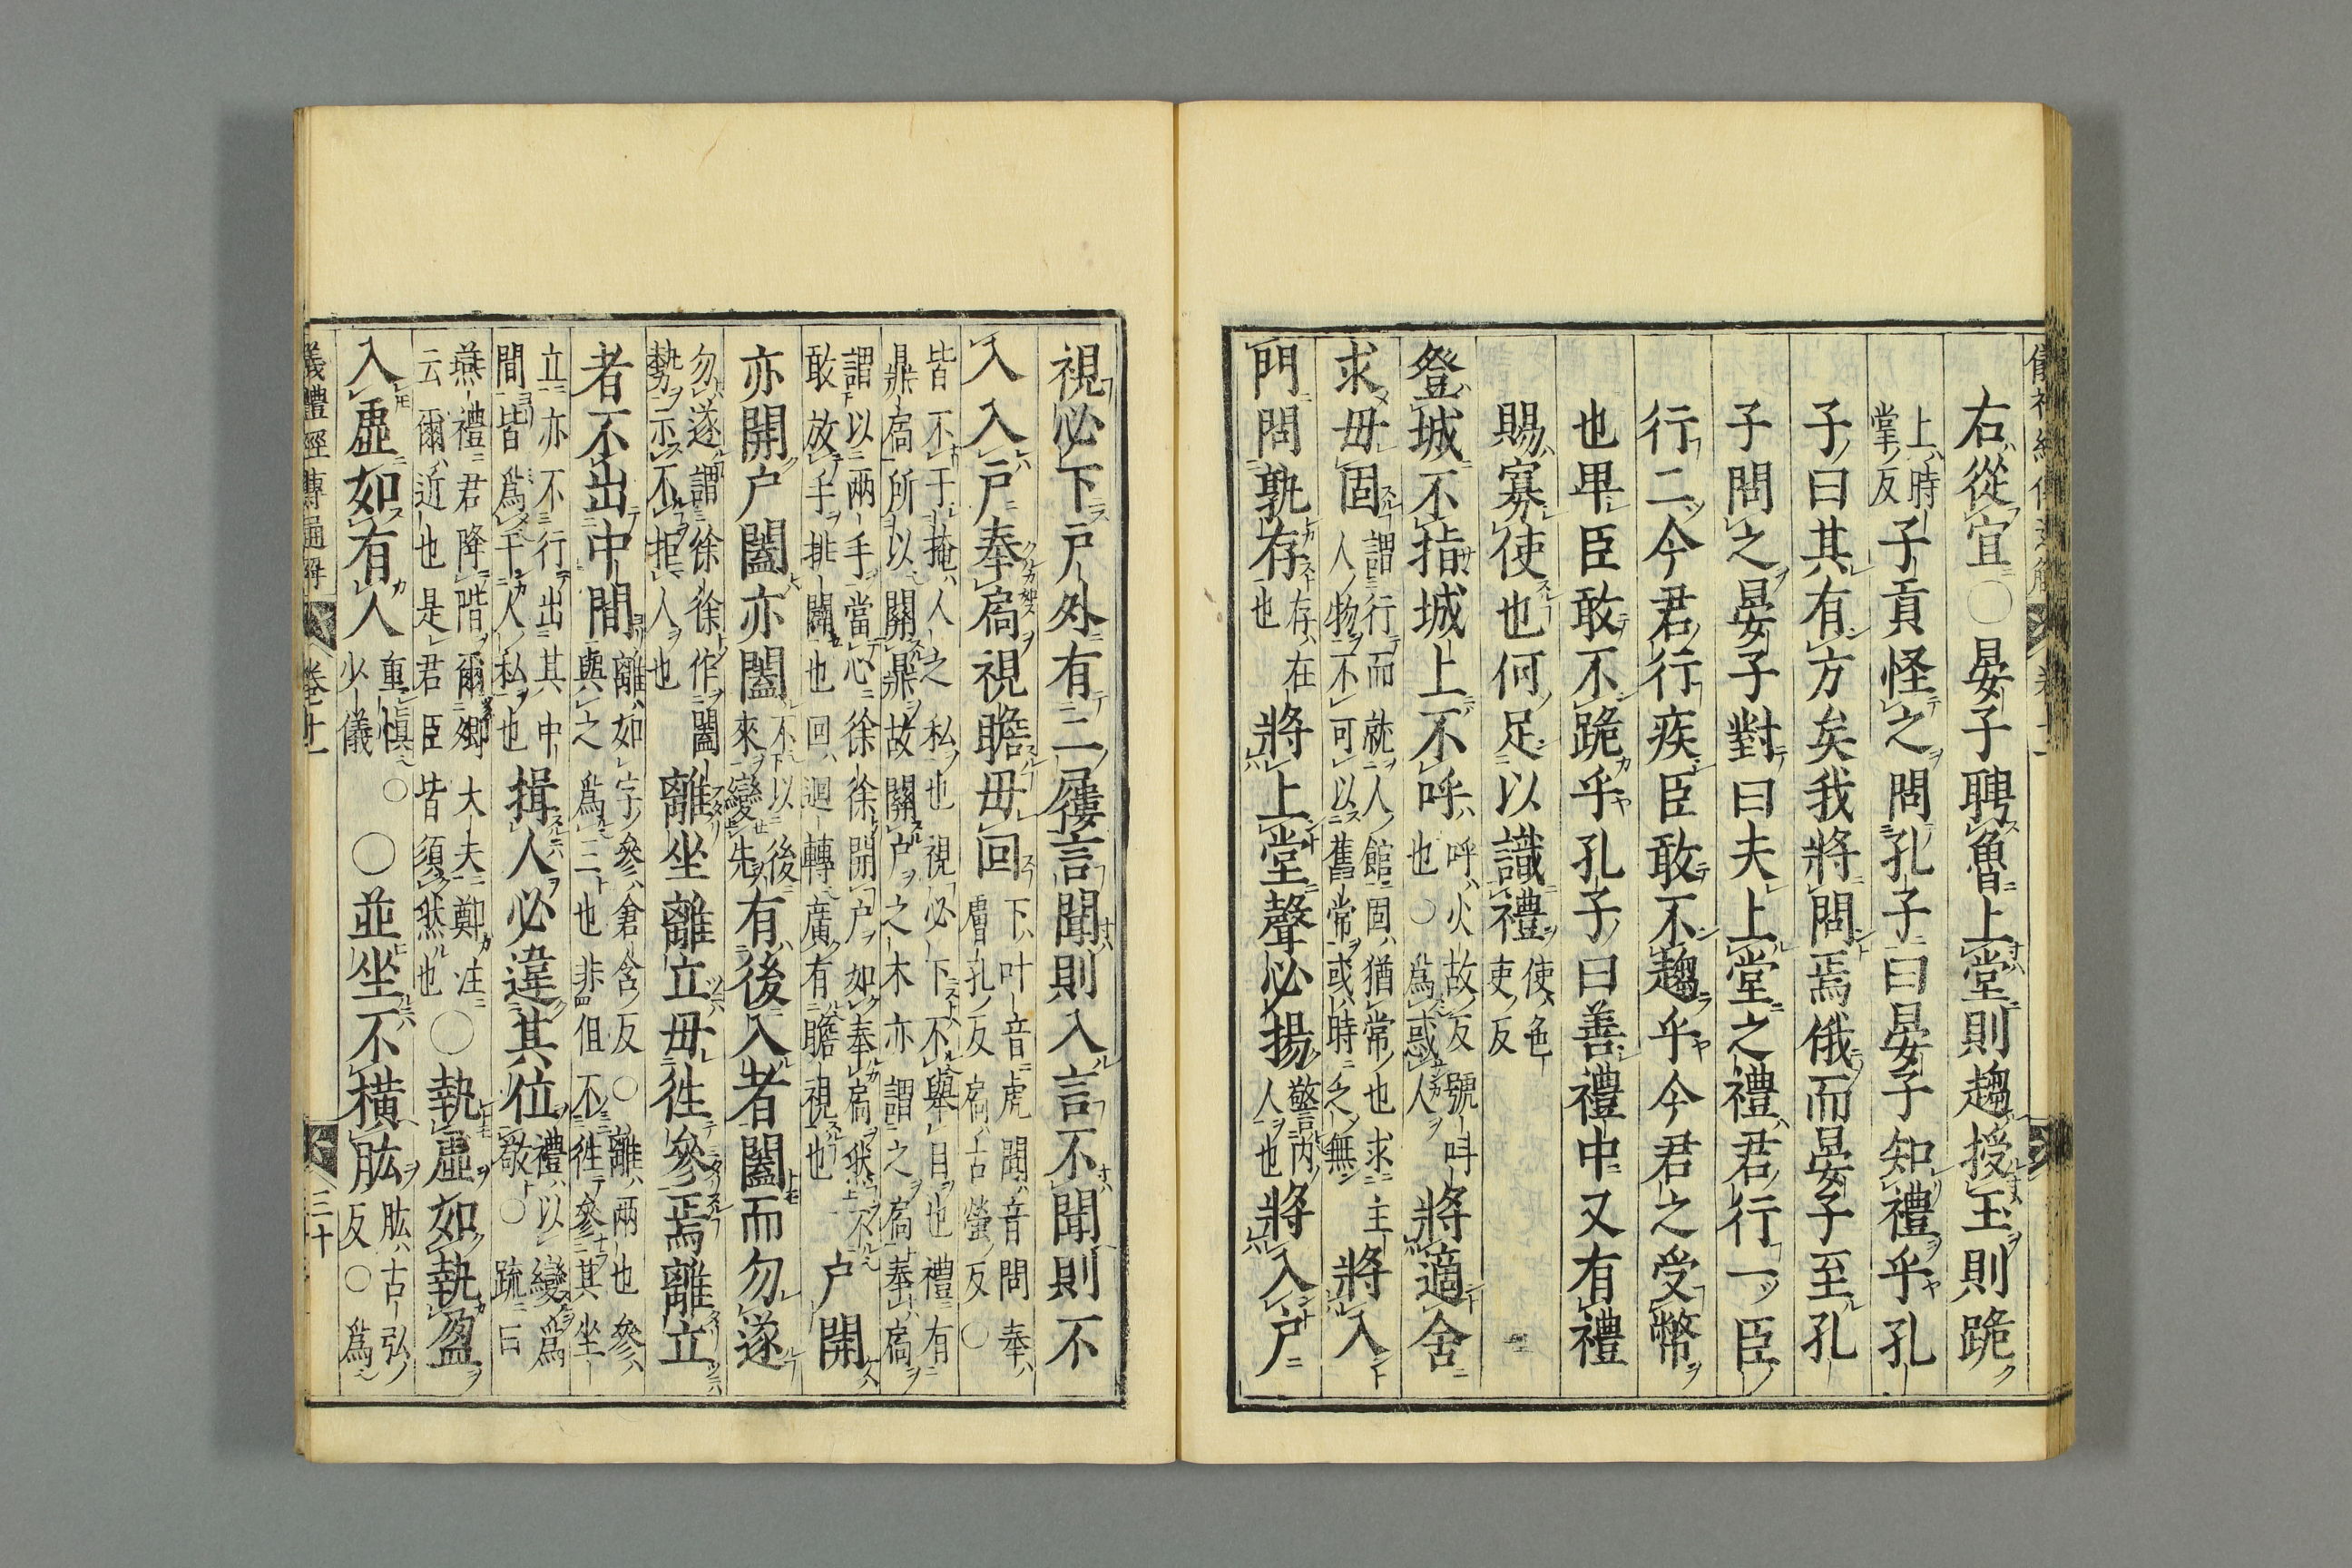 儀禮經傳通解 卷十一
右從宜〇晏子聘魯上堂則趨授玉則跪
上時掌反子貢怪之問孔子曰晏子知禮乎孔
子曰其有方矣我將問焉俄而晏子至孔
子問之晏子對曰夫上堂之禮君行一臣
行二今君行疾臣敢不趨乎今君之受幣
也卑臣敢不跪乎孔子曰善禮中又有禮
賜寡使也何足以識禮使色吏反
登城不指城上不呼呼火故反號呌也〇為惑人將適舍
求毋固謂行而就人館固猶常也求主人物不可以舊常或時乏無將入
門問孰存存在也將上堂聲必揚警内人也將入戸
視必下戸外有二屨言聞則入言不聞則不
入入戸奉扃視瞻毋回下叶音虎聞音問奉膚孔反扃古螢反〇
皆不于掩人之私也視必下不舉目也禮有鼎扃所以關鼎故關戸之木亦謂之扃奉扃
謂以兩手當心徐徐開戸如奉扃狀不敢放手排闥也回迴轉廣有瞻視也户開
亦開户闔亦闔不以後來變先有後入者闔而勿遂
勿遂謂徐徐作闔勢示不拒人也離坐離立毋徃參焉離立
者不出中間離如字參倉含反〇離兩也參與之為三也非但不徃參其坐
立亦不行出其中間皆為干人私也揖人必違其位禮以變為敬〇疏曰
燕禮君降階爾卿大夫鄭注云爾近也是君臣皆須然也〇執虛如執盈
入虛如有人重慎〇少儀〇並坐不橫肱肱古弘反〇為
儀禮經傳通解 卷十一 三十